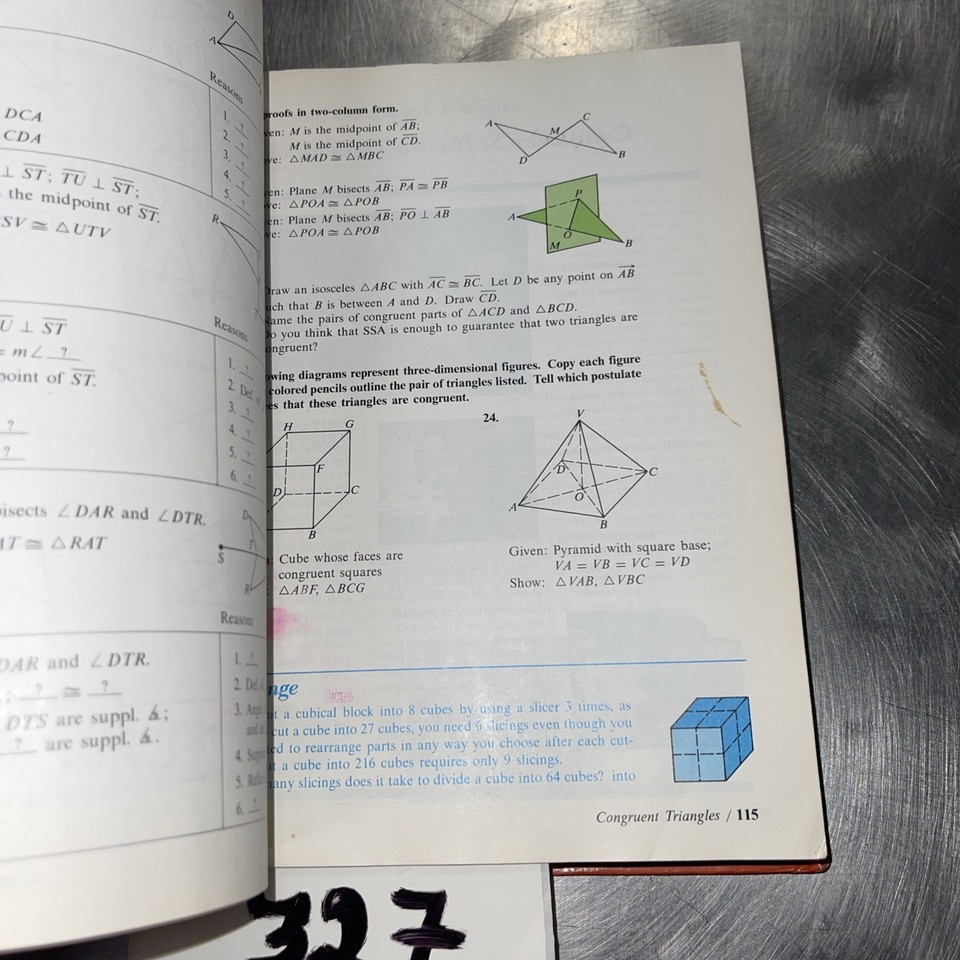 D
A
Reasons
DCA
CDA
1. ?
2. ?
3. ?
4. ?
5. ?
⊥ ST; TU ⊥ ST;
the midpoint of ST.
SV ≅ △UTV
R
U ⊥ ST
= m∠ ?
point of ST.
?
?
Reasons
1. ?
2. Def. of
3. ?
4. ?
5. ?
6. ?
bisects ∠DAR and ∠DTR.
AT ≅ △RAT
D
S
R
Reasons
DAR and ∠DTR.
; ? ≅ ?
DTS are suppl. ∡;
? are suppl. ∡.
1. ?
2. Def. of
3.
4.
5.
6. ?
proofs in two-column form.
en: M is the midpoint of AB;
M is the midpoint of CD.
ve: △MAD ≅ △MBC
A
C
M
D
B
en: Plane M bisects AB; PA ≅ PB
ve: △POA ≅ △POB
en: Plane M bisects AB; PO ⊥ AB
ve: △POA ≅ △POB
P
A
O
M
B
Draw an isosceles △ABC with AC ≅ BC. Let D be any point on AB
uch that B is between A and D. Draw CD.
Name the pairs of congruent parts of △ACD and △BCD.
Do you think that SSA is enough to guarantee that two triangles are
ongruent?
owing diagrams represent three-dimensional figures. Copy each figure
colored pencils outline the pair of triangles listed. Tell which postulate
es that these triangles are congruent.
H
G
F
D
C
B
: Cube whose faces are
congruent squares
: △ABF, △BCG
24.
V
D
C
O
A
B
Given: Pyramid with square base;
VA = VB = VC = VD
Show: △VAB, △VBC
nge
ut a cubical block into 8 cubes by using a slicer 3 times, as
cut a cube into 27 cubes, you need 6 slicings even though you
ed to rearrange parts in any way you choose after each cut-
t a cube into 216 cubes requires only 9 slicings.
any slicings does it take to divide a cube into 64 cubes? into
Congruent Triangles / 115
327